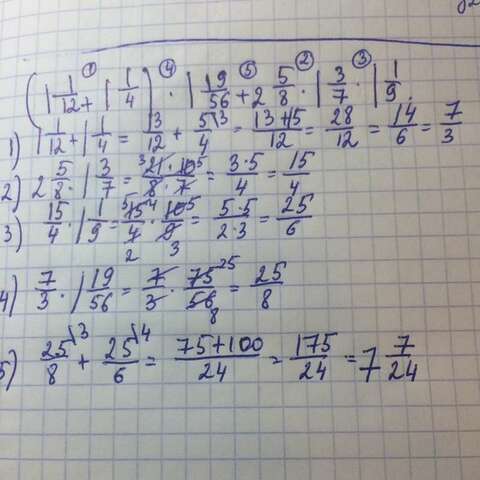 (1 1/12 + 1 1/4) · 1 19/56 + 2 5/8 · 1 3/7 · 1 1/9.
① ④ ⑤ ② ③
1) 1 1/12 + 1 1/4 = 13/12 + 5/4 \3 = 13+15/12 = 28/12 = 14/6 = 7/3
2) 2 5/8 · 1 3/7 = 3 21 · 10 5/8 · 7 = 3·5/4 = 15/4
3) 15/4 · 1 1/9 = 5 15/4 2 · 10 5/9 3 = 5·5/2·3 = 25/6
4) 7/3 · 1 19/56 = 7/3 · 75 25/56 8 = 25/8
5) 25/8 \3 + 25/6 \4 = 75+100/24 = 175/24 = 7 7/24